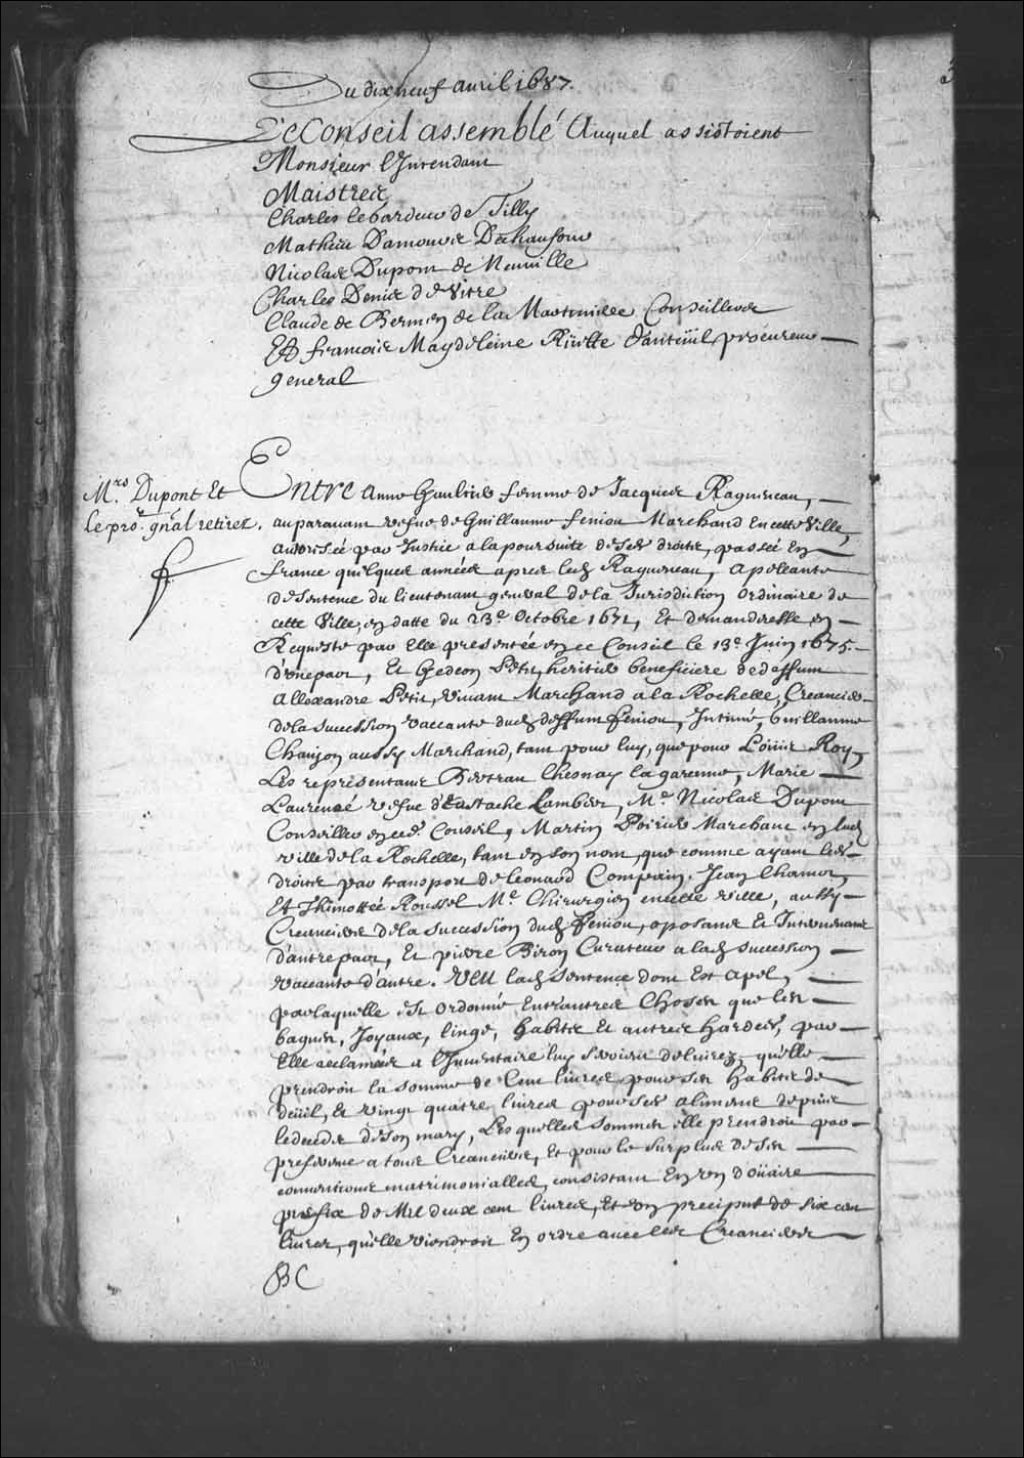 Du dixneuf avril 1687.
Le Conseil assemblé Auquel assistoient
Monsieur l'Intendant
Maistres
Charles Lebardeur de Tilly
Mathieu Damours Deschaufour
Nicolas Dupont de Neuville
Charles Denis de Vitré
Claude de Bermen de la Martiniere Conseillers
Et francois Magdeleine Rüette d'auteüil procureur
general
Mrs. Dupont Et
le pror. gñal retirez.
Entre Anne Gaultier femme de Jacques Raguneau,
auparavant vefve de Guillaume feniou Marchand En cette Ville,
autorisée par Justice a la poursuite de ses droits, passée En
france quelques années apres led Raguneau, apellante
de sentence du lieutenant general de la Jurisdiction ordinaire de
cette Ville, en datte du 23e. octobre 1671, Et demanderesse en
Requeste par Elle presentée en ce Conseil le 13e. Juin 1675.
d'une part, Et Gedeon Petit, heritier beneficiere de deffunt
Allexandre Petit, vivant Marchand a la Rochelle, Creancier
de la succession vaccante dud deffunt feniou, Intimé, Guillaume
Chanjon aussy Marchand, tant pour luy, que pour Loüis Roy,
Les representans Bertran Chesnay la garenne, Marie
Laurence vefve d'Eustache Lambert, Me. Nicolas Dupont
Conseiller en ced. Conseil, Martin Poirier Marchant en lad
ville de la Rochelle, tant en son nom, que comme ayant les
droits par transport de Leonard Compain. Jean Chamot,
Et Thimottée Roussel Me. Chirurgien en cette ville, aussy
Creanciers de la succession dud feniou, oposans Et Intervenans
d'autre part, Et pierre Biron Curateur a lad succession
vaccante d'autre. Veu lad sentence dont Est apel,
par laquelle Est ordonné Entr'autres Choses que les
bagues, Joyaux, linge, habits Et autres hardes, par
Elle reclamées a l'Inventaire luy seroient delivrez, qu'elle
prendroit la somme de Cent livres pour ses habits de
deüil, Et vingt quatre livres pour ses alimens depuis
le deceds de son mary, Les quelles sommes elle prendroit par
preference a tous Creanciers, Et pour le surplus de ses
conventions matrimonialles, consistant En un doüaire
prefix de Mil deux cent livres, Et un preciput de six cent
livres, qu'elle viendroit En ordre avec les Creanciers
BC